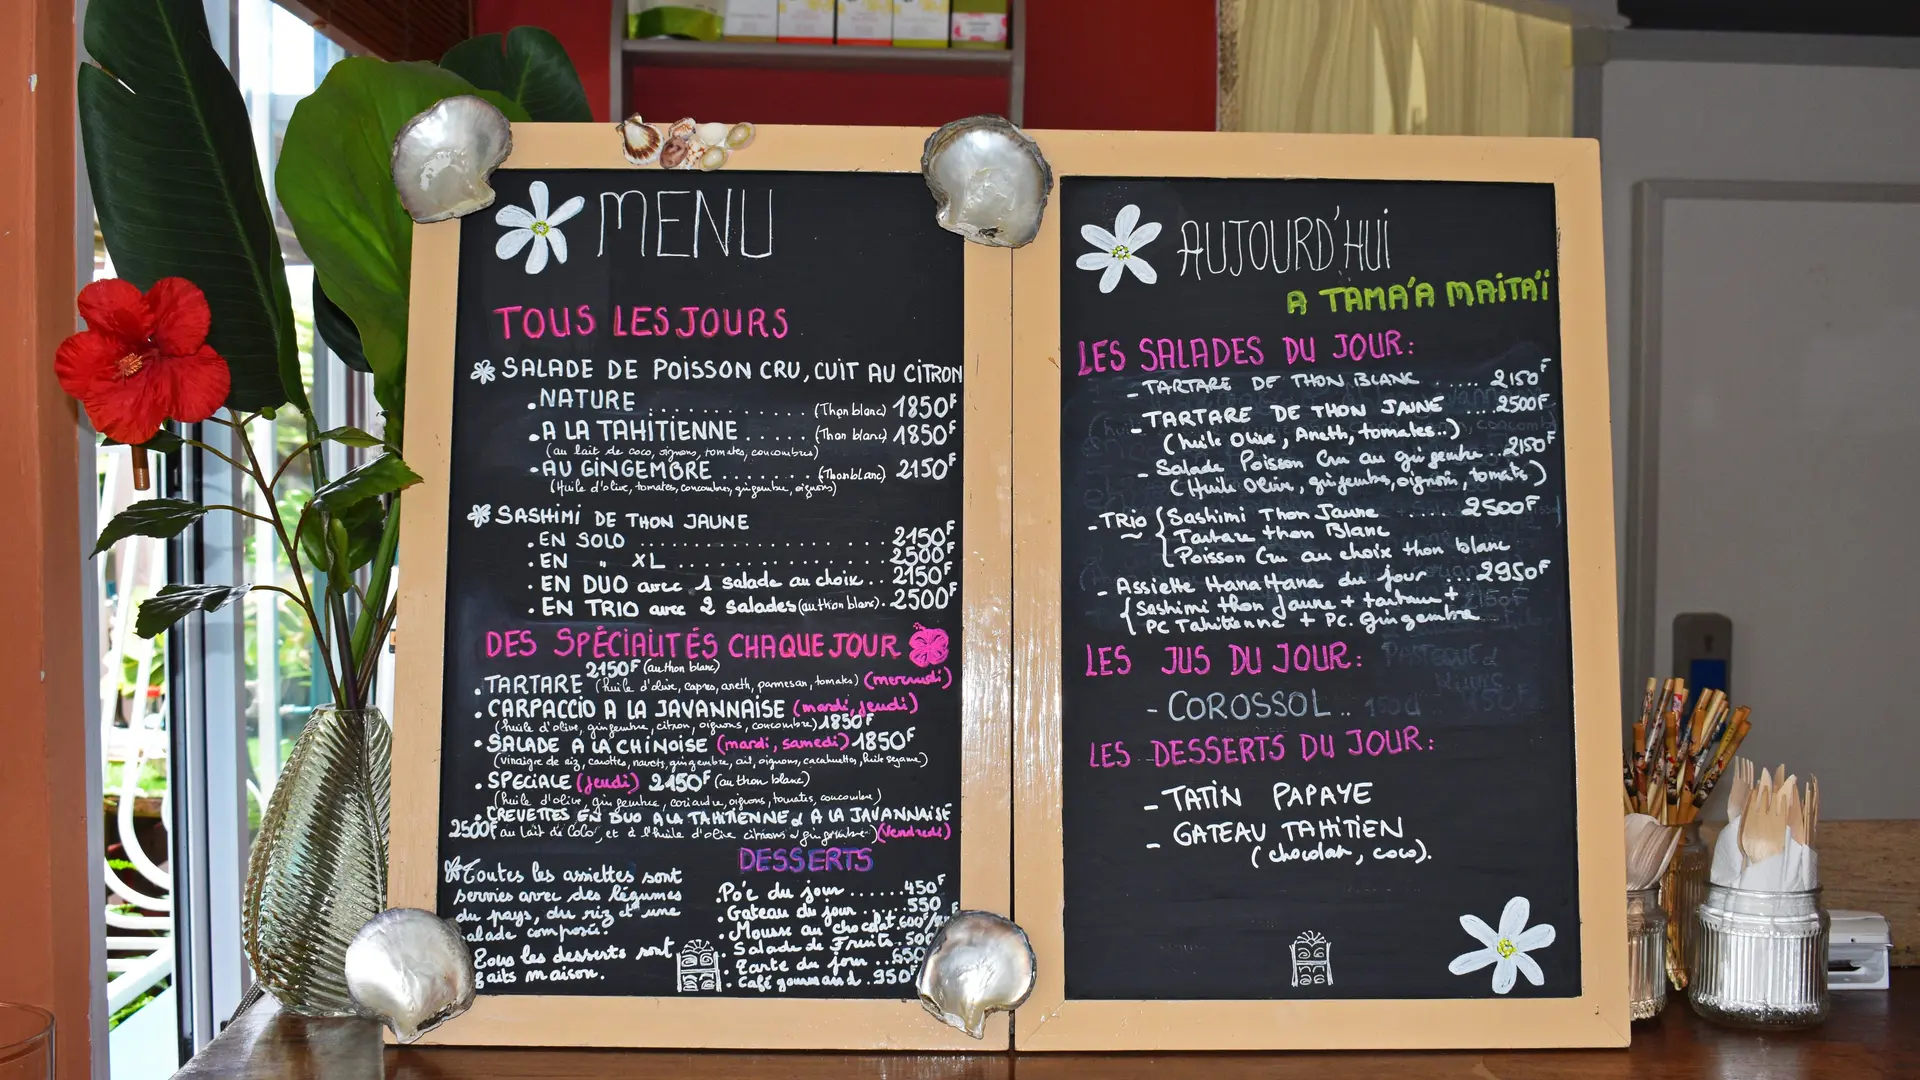 MENU
TOUS LES JOURS
SALADE DE POISSON CRU, CUIT AU CITRON
. NATURE .......... (Thon blanc) 1850F
. A LA TAHITIENNE ..... (Thon blanc) 1850F
(au lait de coco, oignons, tomates, concombres)
. AU GINGEMBRE ....... (Thon blanc) 2150F
(Huile d'olive, tomates, concombres, gingembre, oignons)
SASHIMI DE THON JAUNE
. EN SOLO .................... 2150F
. EN " XL .................... 2500F
. EN DUO avec 1 salade au choix .. 2150F
. EN TRIO avec 2 salades (au thon blanc) . 2500F
DES SPÉCIALITÉS CHAQUE JOUR
2150F (au thon blanc)
. TARTARE (huile d'olive, capres, aneth, parmesan, tomates) (mercredi)
. CARPACCIO A LA JAVANNAISE (mardi, jeudi)
(huile d'olive, gingembre, citron, oignons, concombre) 1850F
. SALADE A LA CHINOISE (mardi, samedi) 1850F
(vinaigre de riz, carottes, navets, gingembre, ail, oignons, cacahuettes, huile sesame)
. SPECIALE (jeudi) 2150F (au thon blanc)
(huile d'olive, gingembre, coriandre, oignons, tomates, concombre)
. CREVETTES EN DUO A LA TAHITIENNE & A LA JAVANNAISE
2500F au lait de coco, et à l'huile d'olive citrons gingembre) (Vendredi)
Toutes les assiettes sont
servies avec des légumes
du pays, du riz et une
salade composée.
Tous les desserts sont
faits maison.
DESSERTS
. Po'e du jour ...... 450F
. Gateau du jour .... 550
. Mousse au chocolat . 600F
. Salade de Fruits . 500
. Tarte du jour .. 650
. Café gourmand . 950F
AUJOURD'HUI
A TAMA'A MAITAÏ
LES SALADES DU JOUR :
- TARTARE DE THON BLANC ..... 2150F
- TARTARE DE THON JAUNE .... 2500F
(huile Olive, Aneth, tomates..)
- Salade Poisson Cru au gingembre .. 2150F
(Huile Olive, gingembre, oignon, tomates)
- TRIO { Sashimi Thon Jaune .... 2500F
Tartare thon Blanc
Poisson Cru au choix thon blanc
- Assiette HanaHana du jour ... 2950F
{ Sashimi thon Jaune + tartare +
PC Tahitienne + PC. gingembre
LES JUS DU JOUR :
- COROSSOL ..
LES DESSERTS DU JOUR :
- TATIN PAPAYE
- GATEAU TAHITIEN
(chocolat, coco).